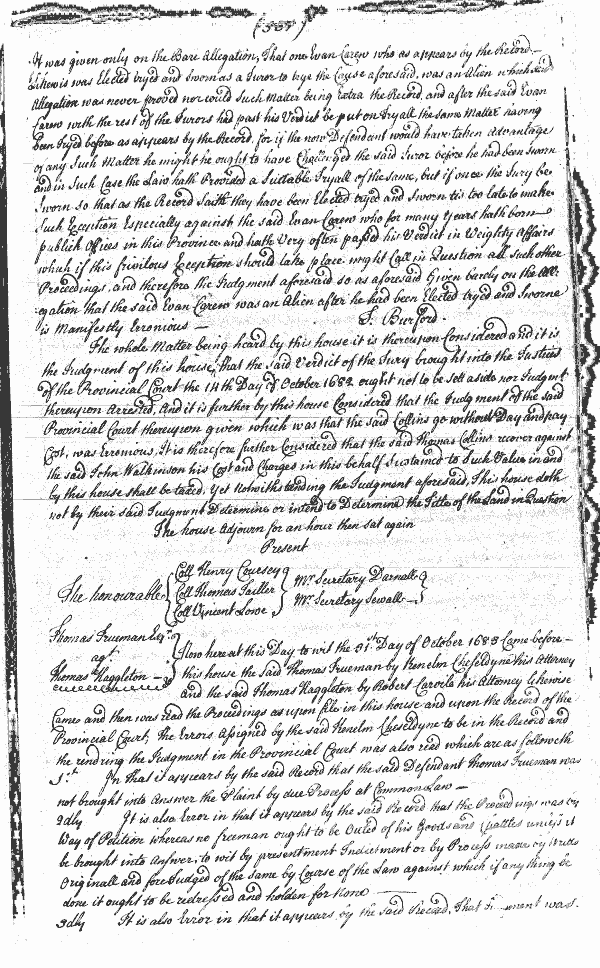 It was given only on the Bare Allegation, That one Evan Carew who as appears by the Record
Likewis was Elected tryed and Sworn as a Juror to trye the Cause aforesaid, was an Alien which said
Allegation was never proved nor could Such Matter being Extra the Record, and after the said Evan
Carew with the rest of the Jurors had past his Verdict be put on Tryall the same Matter having
been tryed before as appears by the Record, for if the now Defendant would have taken Advantage
of any Such Matter he might he ought to have Challenged the said Juror before he had been Sworn
and in Such Case the Law hath Provided a Suitable Tryall of the same, but if once the Jury be
Sworn so that as the Record Saith they have been Elected tryed and Sworn tis too late to make
Such Exception Especially against the said Evan Carew who for many Years hath born
publick Offices in this Province and hath Very often passed his Verdict in Weighty Affairs
which if this frivilous Exception should take place might Call in Question all Such other
Proceedings, and therefore the Judgment aforesaid so as aforesaid Given barely on the All-
egation that the said Evan Carew was an Alien after he had been Elected tryed and Sworne
is Manifestly Erronious
T. Burford
The whole Matter being heard by this house it is thereupon Considered and it is
the Judgment of this house, that the said Verdict of the Jury brought into the Justices
of the Provincial Court the 14th Day of October 1682 ought not to be sett aside nor Judgmt
thereupon Arrested, And it is further by this house Considered that the Judgment of the said
Provincial Court thereupon given which was that the said Collins go without Day and pay
Cost, was Erronious, It is therefore further Considered that the said Thomas Collins recover against
the said John Watkinson his Cost and Charges in this behalf Sustained to Such Value in and
by this house shall be taxed, Yet notwithstanding the Judgment aforesaid, This house doth
not by their said Judgment Determine or intend to Determine the Title of the Land in Question
The house Adjourn for an hour then sat again
Present
The honourable
Coll Henry Coursey
Coll Thomas Tailler
Coll Vincent Lowe
Mr Secretary Darnall
Mr Secretary Sewall
Thomas Trueman Esqr
agt
Thomas Haggleton
Now here at this Day to wit the 31st Day of October 1683 Came before
this house the said Thomas Trueman by Kenelm Cheseldyne his Attorney
and the said Thomas Haggleton by Robert Carvile his Attorney likewise
Came and then was read the Proceedings as upon file in this house and upon the Record of the
Provincial Court, the Errors Assigned by the said Kenelm Cheseldyne to be in the Record and
the rendring the Judgment in the Provincial Court was also read which are as followeth
1st In that it appears by the said Record that the said Defendant Thomas Trueman was
not brought into Answer the Plaint by due Process at Common Law
2dly It is also Error in that it appears by the said Record that the Proceedings was by
Way of Petition whereas no freeman ought to be Outed of his Goods and Chattles unless it
be brought into Answer, to wit by presentment Indictment or by Process made by Writt
Originall and forejudged of the same by Course of the Law against which if anything be
done it ought to be redressed and holden for None
3dly It is also Error in that it appears by the said Record, That was